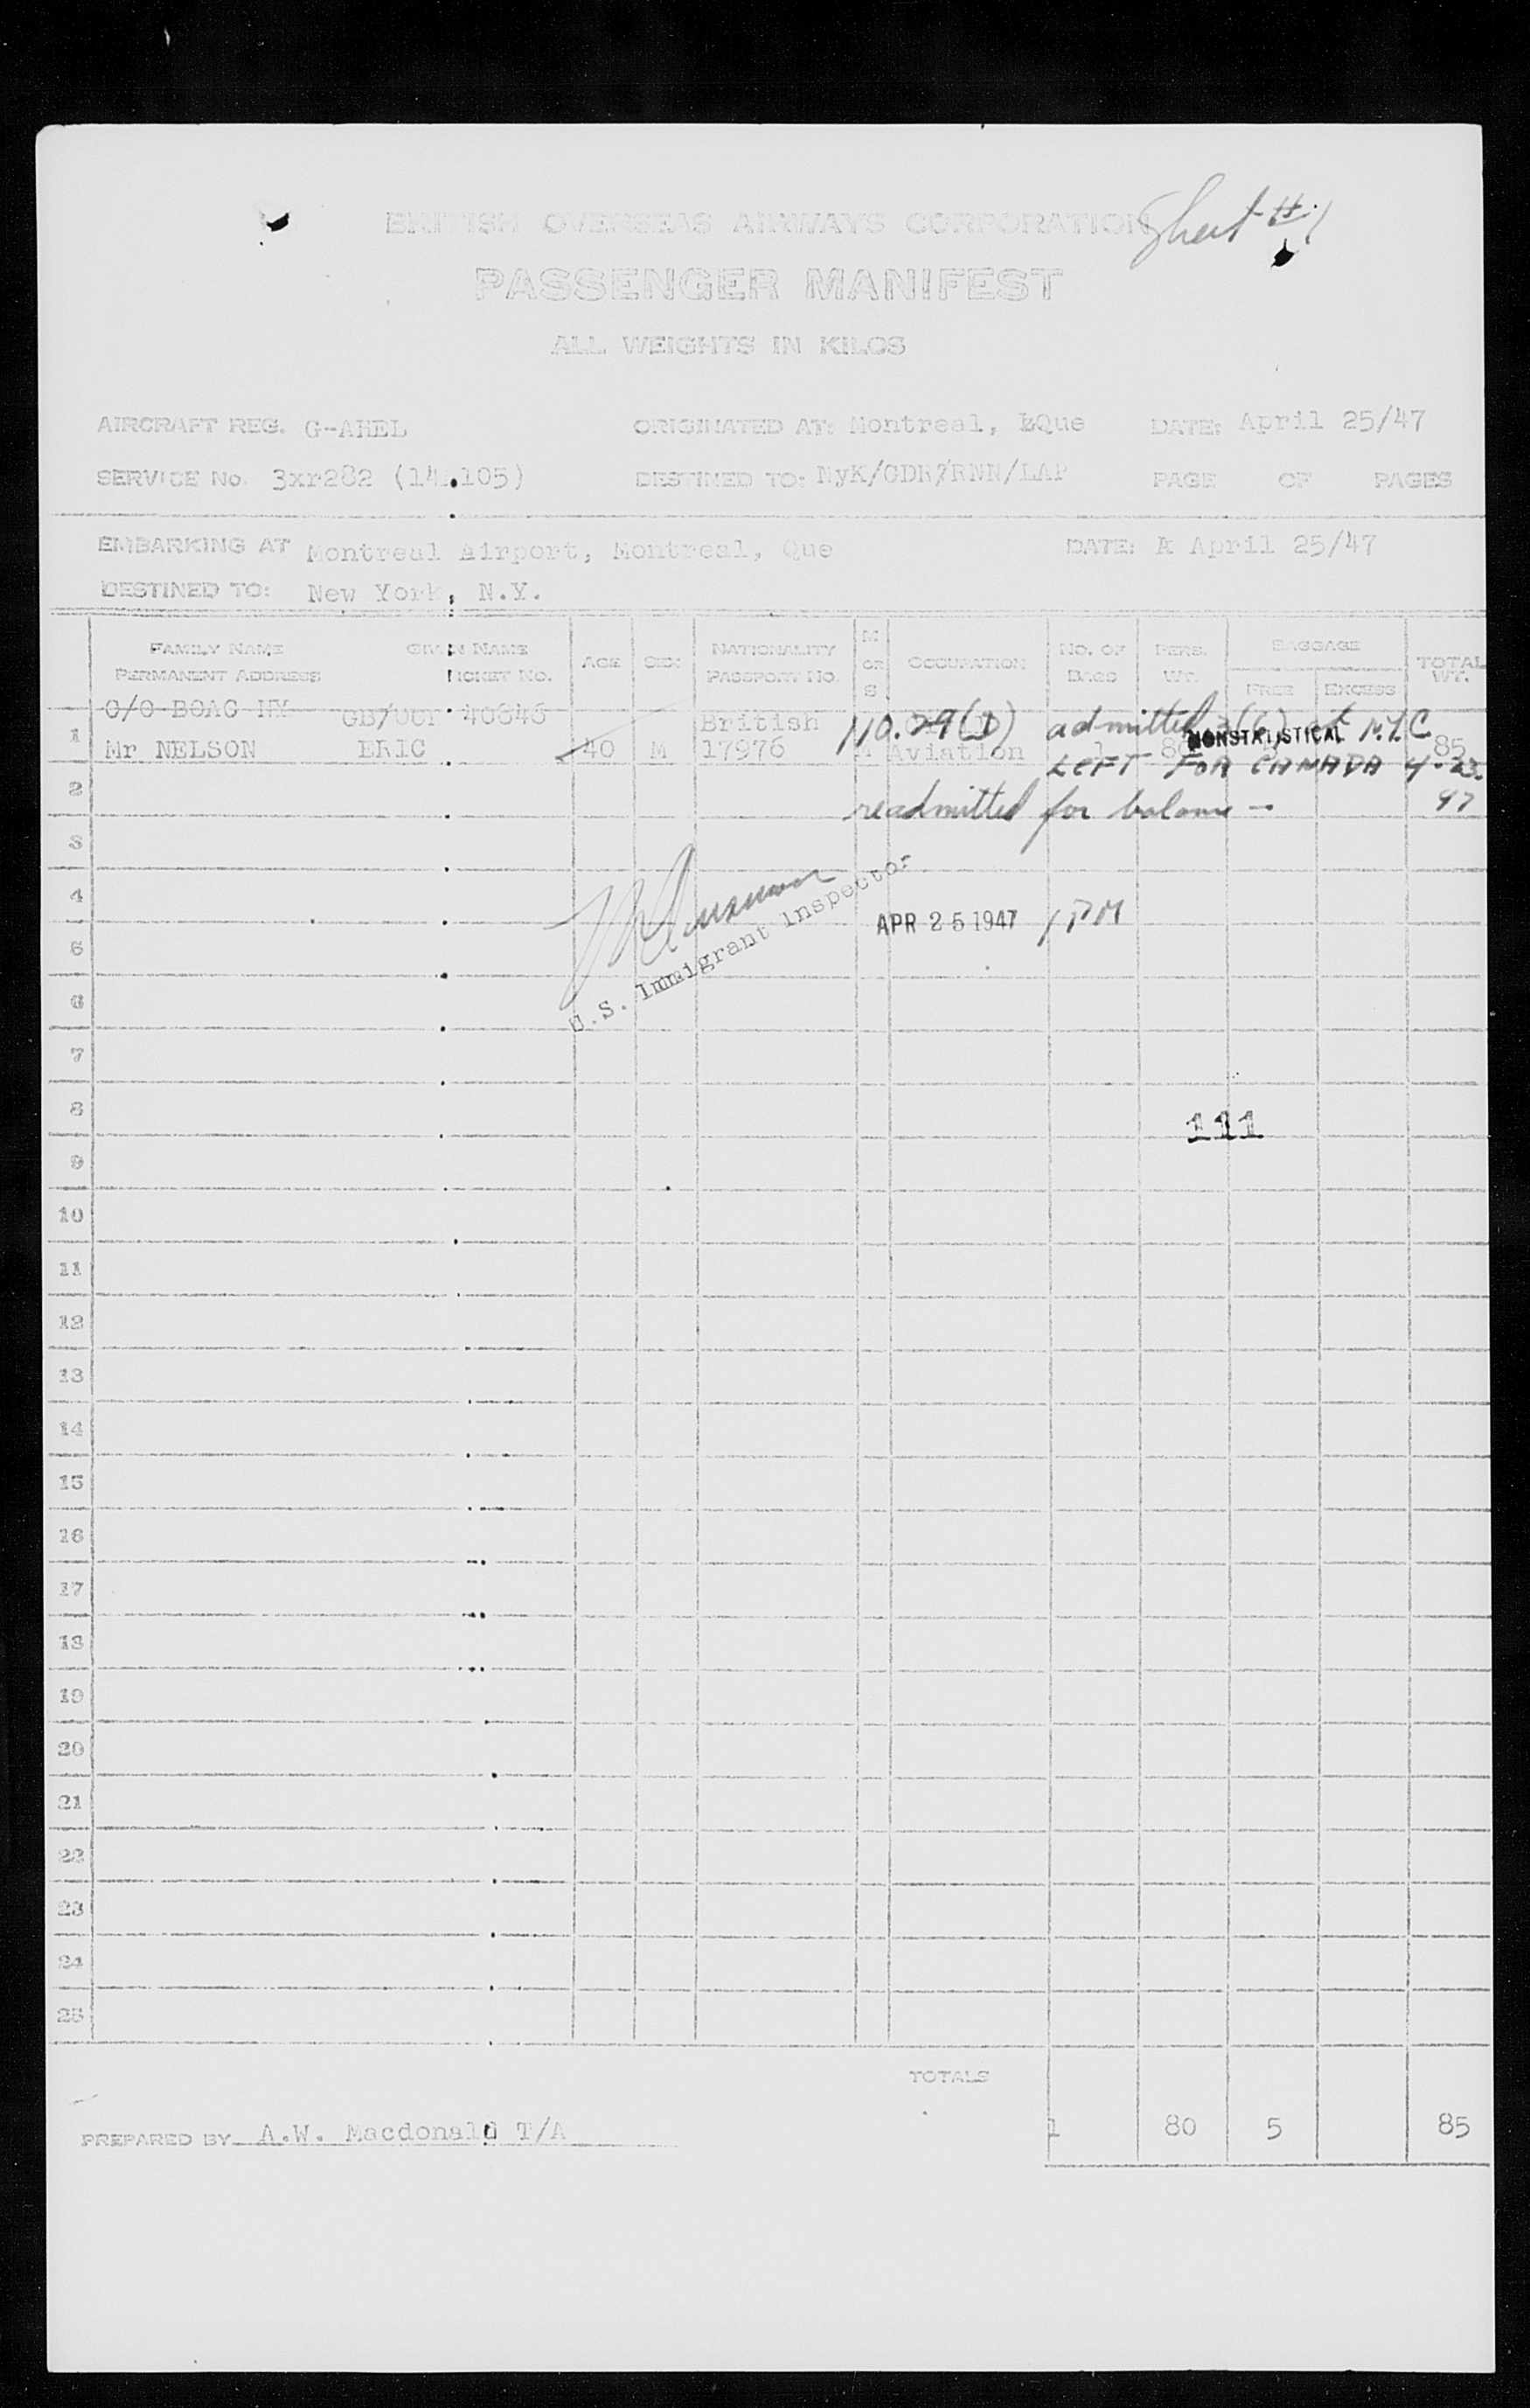 BRITISH OVERSEAS AIRWAYS CORPORATION Sheet #1
PASSENGER MANIFEST
ALL WEIGHTS IN KILOS
AIRCRAFT REG. G-AHEL ORIGINATED AT: Montreal, Que DATE: April 25/47
SERVICE No. 3xr282 DESTINED TO: NyK/GDR/RNN/LAP PAGE OF PAGES
EMBARKING AT Montreal Airport, Montreal, Que DATE: A April 25/47
DESTINED TO: New York, N.Y.
FAMILY NAME GIVEN NAME AGE SEX NATIONALITY M OR S OCCUPATION NO. OF BAGS PERS. WT. BAGGAGE TOTAL WT.
PERMANENT ADDRESS TICKET NO. PASSPORT NO. FREE EXCESS
C/O BOAC NY 40646 British NO. 29(D) admitted at N.Y.C
1 Mr NELSON ERIC 40 M 17976 Aviation 1 80 NONSTATISTICAL 85
LEFT FOR CANADA 4-23-47
2 readmitted for balance -
3
4
U.S. Immigrant Inspector APR 25 1947 1 PM
5
6
7
8 111
9
10
11
12
13
14
15
16
17
18
19
20
21
22
23
24
25
TOTALS
PREPARED BY A.W. Macdonald T/A 1 80 5 85